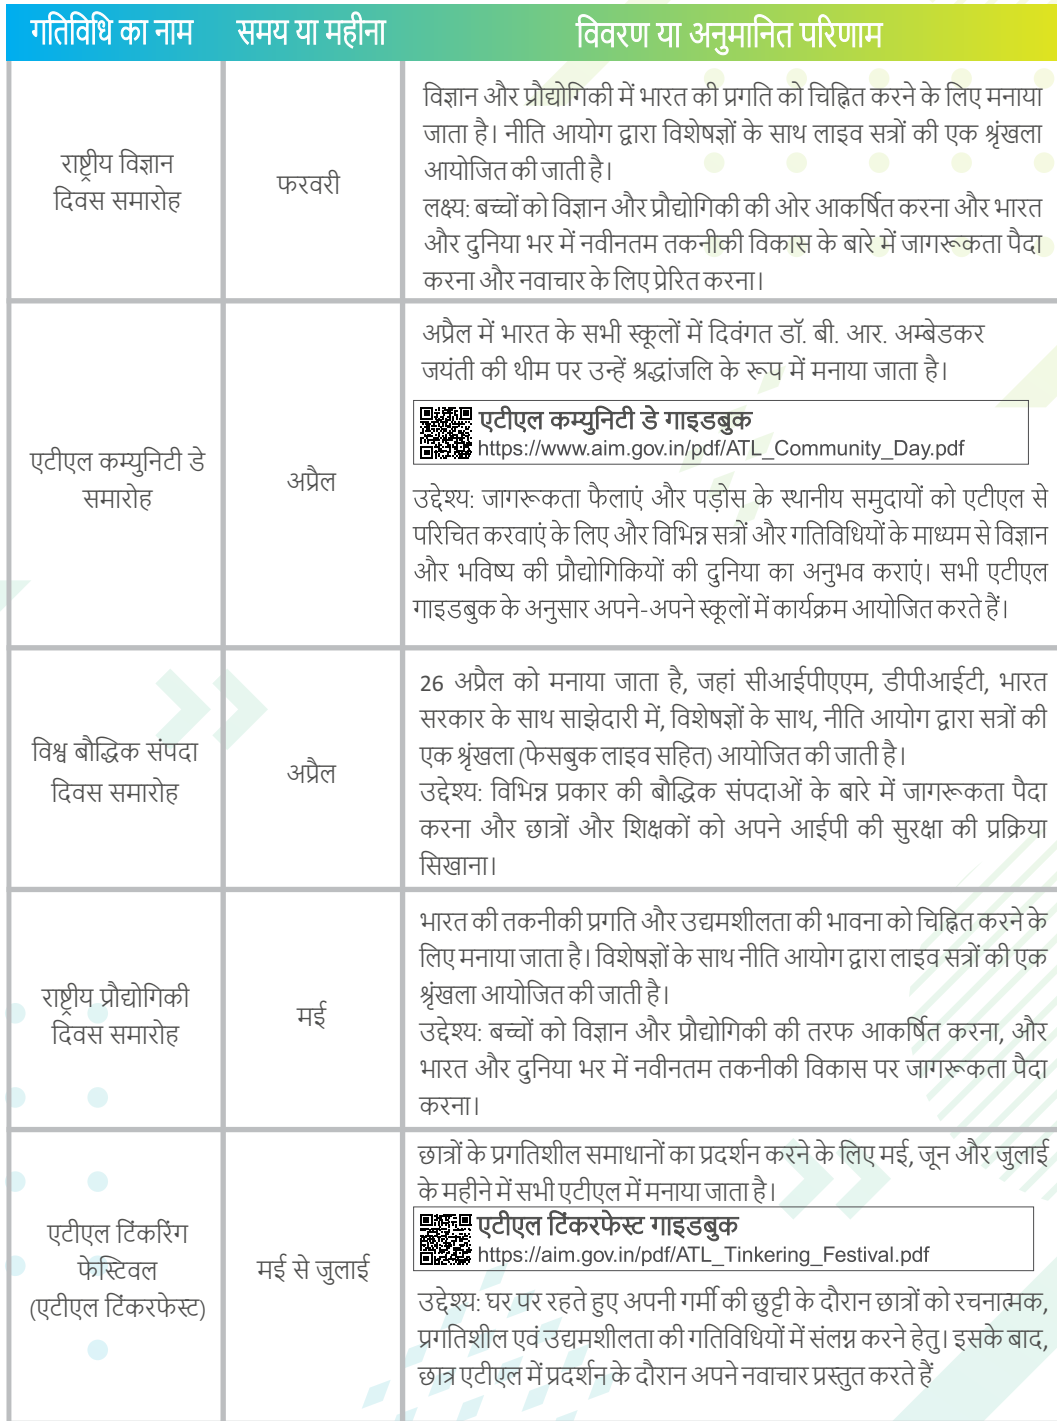 गतिविधि का नाम
समय या महीना
विवरण या अनुमानित परिणाम
राष्ट्रीय विज्ञान
दिवस समारोह
फरवरी
विज्ञान और प्रौद्योगिकी में भारत की प्रगति को चिह्नित करने के लिए मनाया
जाता है। नीति आयोग द्वारा विशेषज्ञों के साथ लाइव सत्रों की एक श्रृंखला
आयोजित की जाती है।
लक्ष्य: बच्चों को विज्ञान और प्रौद्योगिकी की ओर आकर्षित करना और भारत
और दुनिया भर में नवीनतम तकनीकी विकास के बारे में जागरूकता पैदा
करना और नवाचार के लिए प्रेरित करना।
एटीएल कम्युनिटी डे
समारोह
अप्रैल
अप्रैल में भारत के सभी स्कूलों में दिवंगत डॉ. बी. आर. अम्बेडकर
जयंती की थीम पर उन्हें श्रद्धांजलि के रूप में मनाया जाता है।
एटीएल कम्युनिटी डे गाइडबुक
https://www.aim.gov.in/pdf/ATL_Community_Day.pdf
उद्देश्य: जागरूकता फैलाएं और पड़ोस के स्थानीय समुदायों को एटीएल से
परिचित करवाएं के लिए और विभिन्न सत्रों और गतिविधियों के माध्यम से विज्ञान
और भविष्य की प्रौद्योगिकियों की दुनिया का अनुभव कराएं। सभी एटीएल
गाइडबुक के अनुसार अपने-अपने स्कूलों में कार्यक्रम आयोजित करते हैं।
विश्व बौद्धिक संपदा
दिवस समारोह
अप्रैल
26 अप्रैल को मनाया जाता है, जहां सीआईपीएएम, डीपीआईटी, भारत
सरकार के साथ साझेदारी में, विशेषज्ञों के साथ, नीति आयोग द्वारा सत्रों की
एक श्रृंखला (फेसबुक लाइव सहित) आयोजित की जाती है।
उद्देश्य: विभिन्न प्रकार की बौद्धिक संपदाओं के बारे में जागरूकता पैदा
करना और छात्रों और शिक्षकों को अपने आईपी की सुरक्षा की प्रक्रिया
सिखाना।
राष्ट्रीय प्रौद्योगिकी
दिवस समारोह
मई
भारत की तकनीकी प्रगति और उद्यमशीलता की भावना को चिह्नित करने के
लिए मनाया जाता है। विशेषज्ञों के साथ नीति आयोग द्वारा लाइव सत्रों की एक
श्रृंखला आयोजित की जाती है।
उद्देश्य: बच्चों को विज्ञान और प्रौद्योगिकी की तरफ आकर्षित करना, और
भारत और दुनिया भर में नवीनतम तकनीकी विकास पर जागरूकता पैदा
करना।
एटीएल टिंकरिंग
फेस्टिवल
(एटीएल टिंकरफेस्ट)
मई से जुलाई
छात्रों के प्रगतिशील समाधानों का प्रदर्शन करने के लिए मई, जून और जुलाई
के महीने में सभी एटीएल में मनाया जाता है।
एटीएल टिंकरफेस्ट गाइडबुक
https://aim.gov.in/pdf/ATL_Tinkering_Festival.pdf
उद्देश्य: घर पर रहते हुए अपनी गर्मी की छुट्टी के दौरान छात्रों को रचनात्मक,
प्रगतिशील एवं उद्यमशीलता की गतिविधियों में संलग्न करने हेतु। इसके बाद,
छात्र एटीएल में प्रदर्शन के दौरान अपने नवाचार प्रस्तुत करते हैं